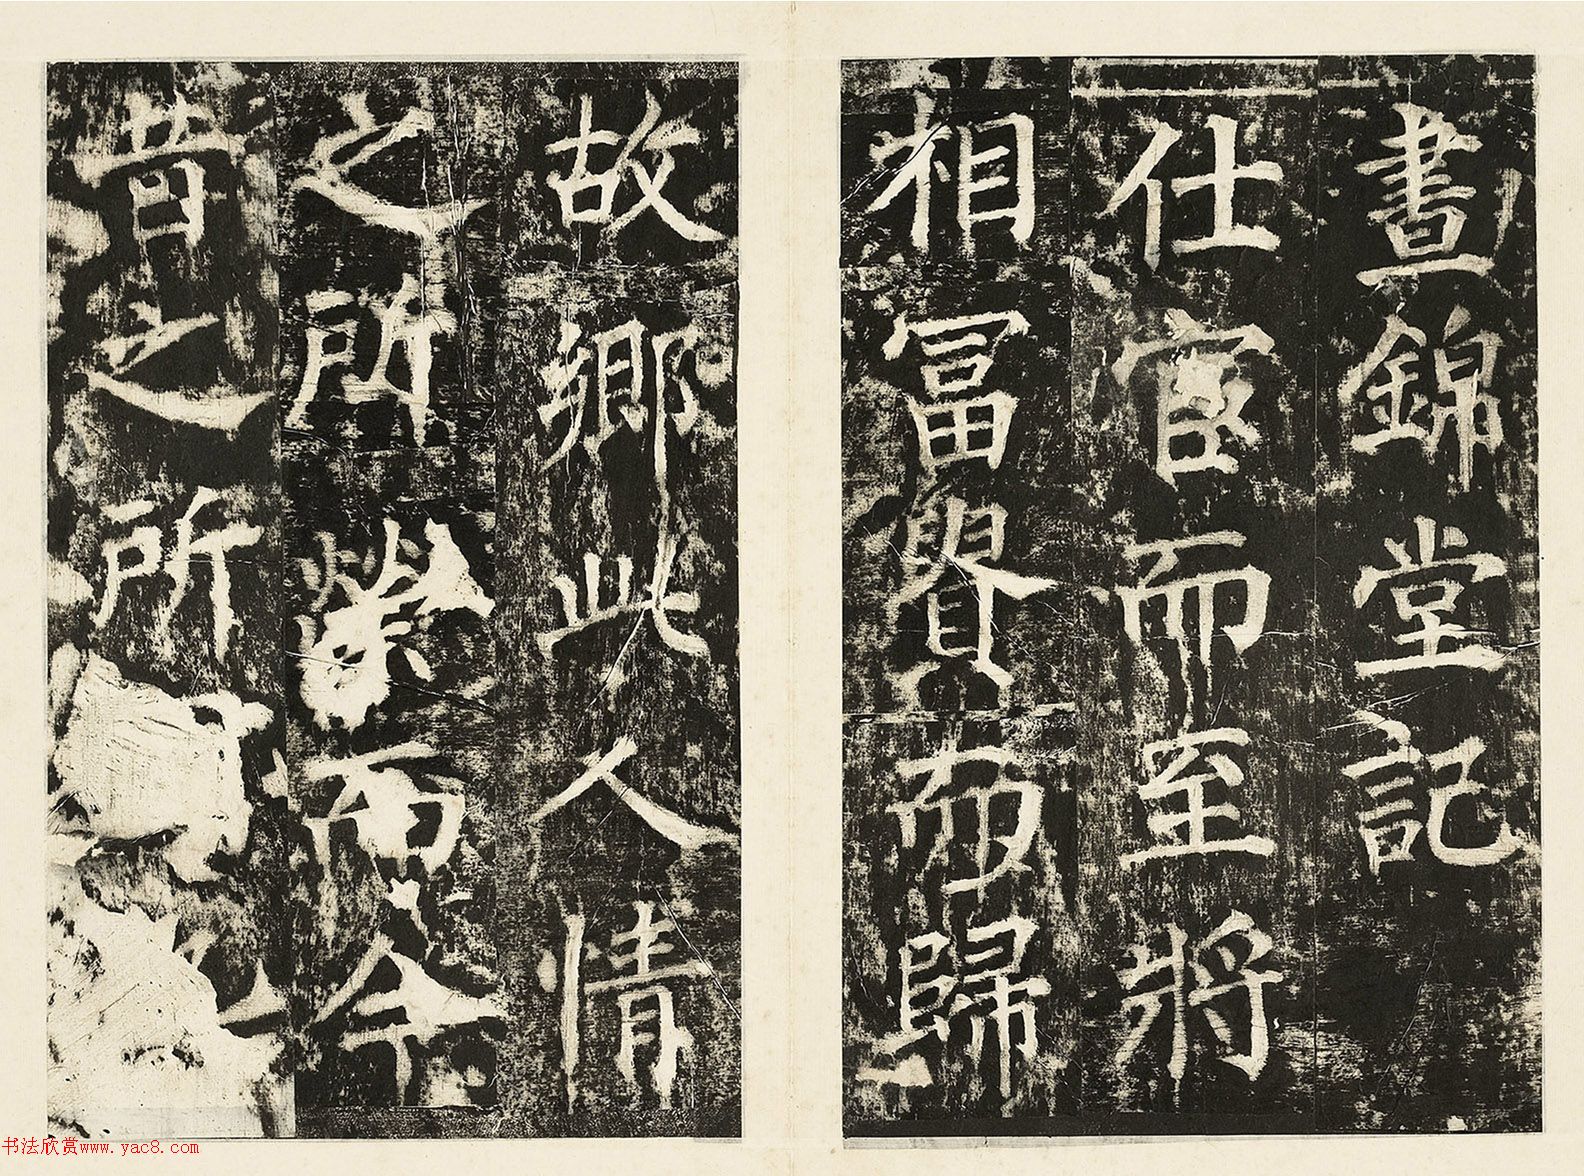 晝錦堂記
仕官而至將
相冨貴而歸
故鄉此人情
之所榮而今
昔之所
书法欣赏www.yac8.com